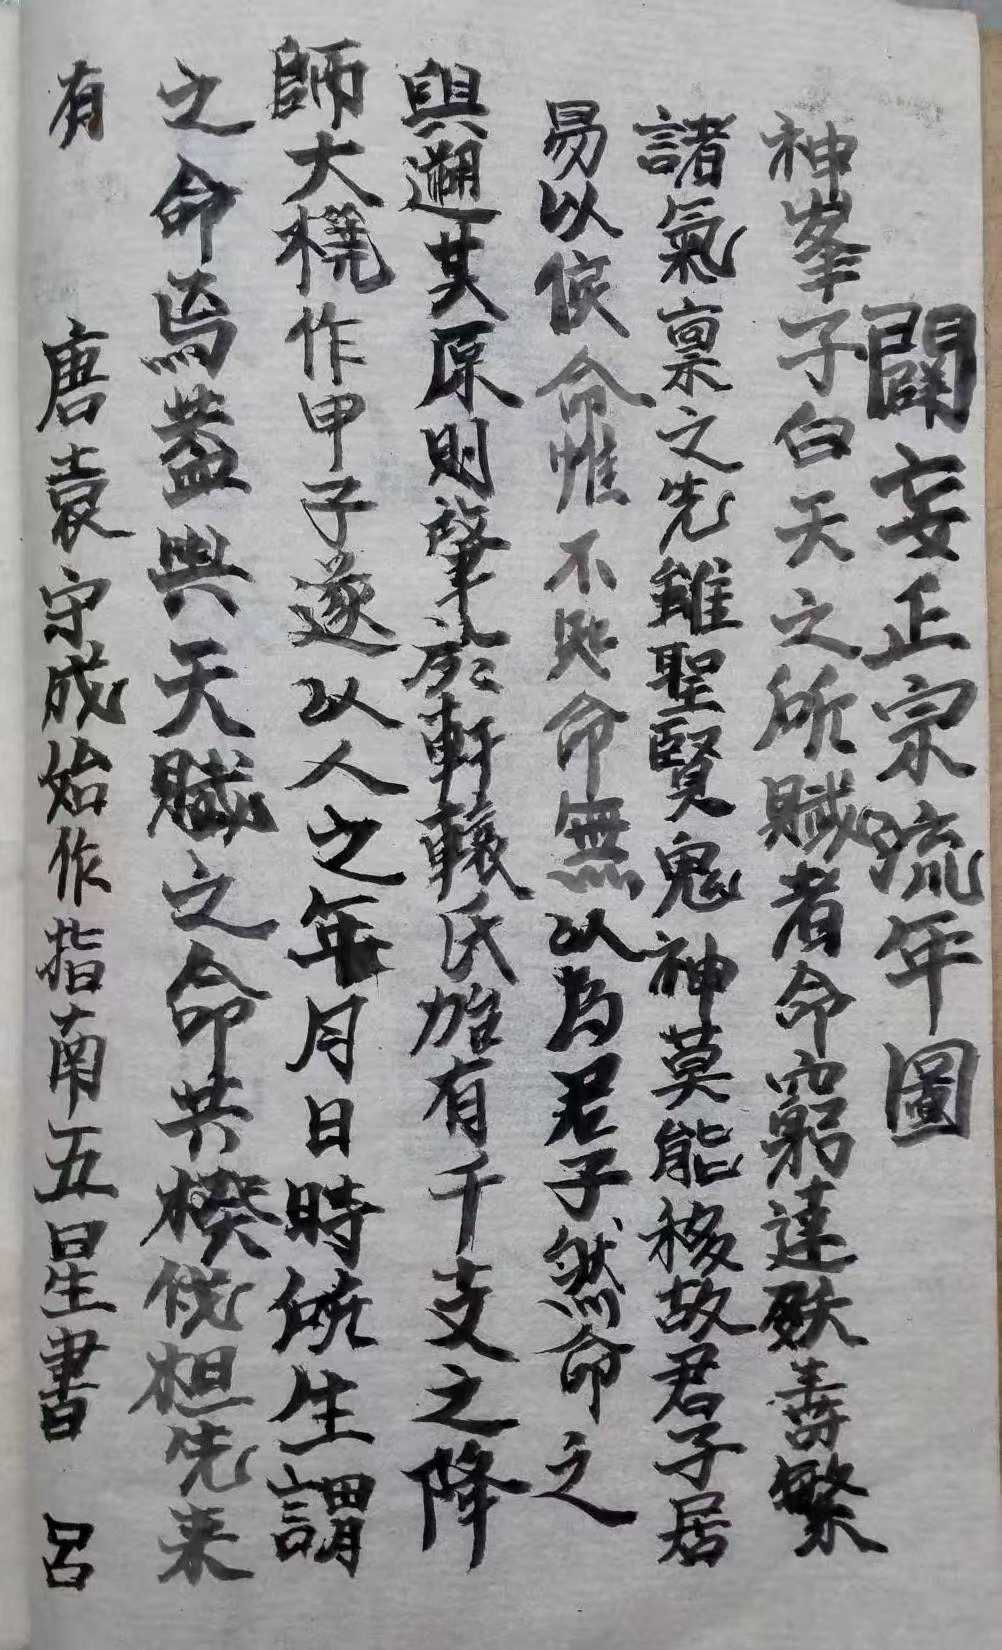 闢妄正宗流年圖
神峯子白天之所賦者命窮達殀壽繁
諸氣稟之先雖聖賢鬼神莫能移故君子居
易以俟命惟不知命無以為君子然命之
與遡其原則肇於軒轅氏始有干支之降
師大橈作甲子遂以人之年月日時所生謂
之命焉蓋與天賦之命共揆但先来
有 唐袁守成始作指南五星書 呂